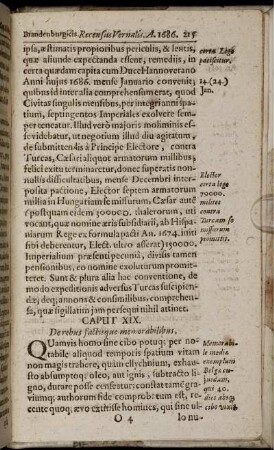 Brandenburgicis Recensus Vernalis. A. 1686. 215
ipsa, æstimatis propioribus periculis, & lentis,
quæ aliunde expectanda essent, remediis, in
certa quædam capita cum Duce Hannoverano
Anni hujus 1686. mensis Januario convenit;
quibus id inter alia comprehensum erat, quod
Civitas singulis mensibus, per integri anni spa-
tium, septingentos Imperiales exolvere sem-
per teneatur. Illud verò majoris moliminis es-
se videbatur, ut negotium illud diu agitatum,
de submittendis à Principe Electore, contra
Turcas, Cæsari aliquot armatorum millibus,
felici exitu terminaretur, donec superatis non-
nullis difficultatibus, mense Decembri inter-
posita pactione, Elector septem armatorum
millia in Hungariam se missurum, Cæsar autē
(postquam eidem 50000. thalerorum, uti
vocant, quæ nomine æris subsidiarii, ab Hispa-
niarum Rege ex formula pacti An. 1674. initi
sibi deberentur, Elect. ultro asserat) 150000.
Imperialium præsenti pecuniâ, divisis tamen
pensionibus, eo nomine exoluturum promit-
teret. Sunt & plura alia huc conventione, de
modo expeditionis adversus Turcas suscipien-
dæ; deq; annonâ & consimilibus, comprehen-
sa, quæ sigillatim jam persequi nihil attinet.
CAPUT XIX.
De rebus factisque memorabilibus.
Quamvis homo sine cibo potuq; per no-
tabile aliquod temporis spatium vitam
non magis trahere, quàm ellychnium, exhaus-
to subductoque; oleo, aut ignis, subtracto li-
gno, durare posse censeatur; constat tamē gra-
viumq; authorum fide comprobatum est, re-
cente quoq; ævo extitisse homines, qui sine ul-
O 4 lo nu-
certa Lege
paciscitur.
14. (24.)
Jan.
Elector
certa lege
70000.
milites
contra
Turcam se
missurum
promittit.
Memorabi-
le inediæ
exemplum
Belga cu-
jusdam,
qui 40.
dies absq;
cibo vixit